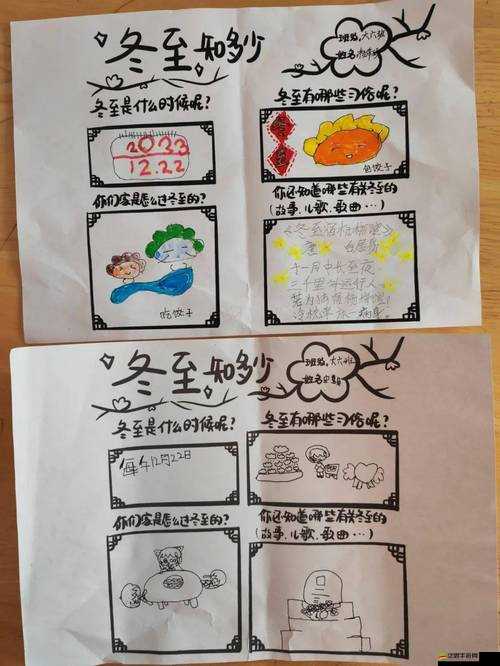 冬至知多少
班级:大六班
姓名:
冬至是什么时候呢?
冬至有哪些习俗呢?
2023
12.22
包饺子
你们家是怎么过冬至的?
你还知道哪些有关冬至的
(故事、儿歌、歌曲…)
吃饺子
《冬至宿杨梅馆》
唐 白居易
十一月中长至夜
三千里外远行人
若为独宿杨梅馆
冷枕单床一病身
冬至知多少
班级:大六班
姓名:
冬至是什么时候呢?
冬至有哪些习俗呢?
每年12月22日
你们家是怎么过冬至的?
你还知道哪些有关冬至的
(故事、儿歌、歌曲…)